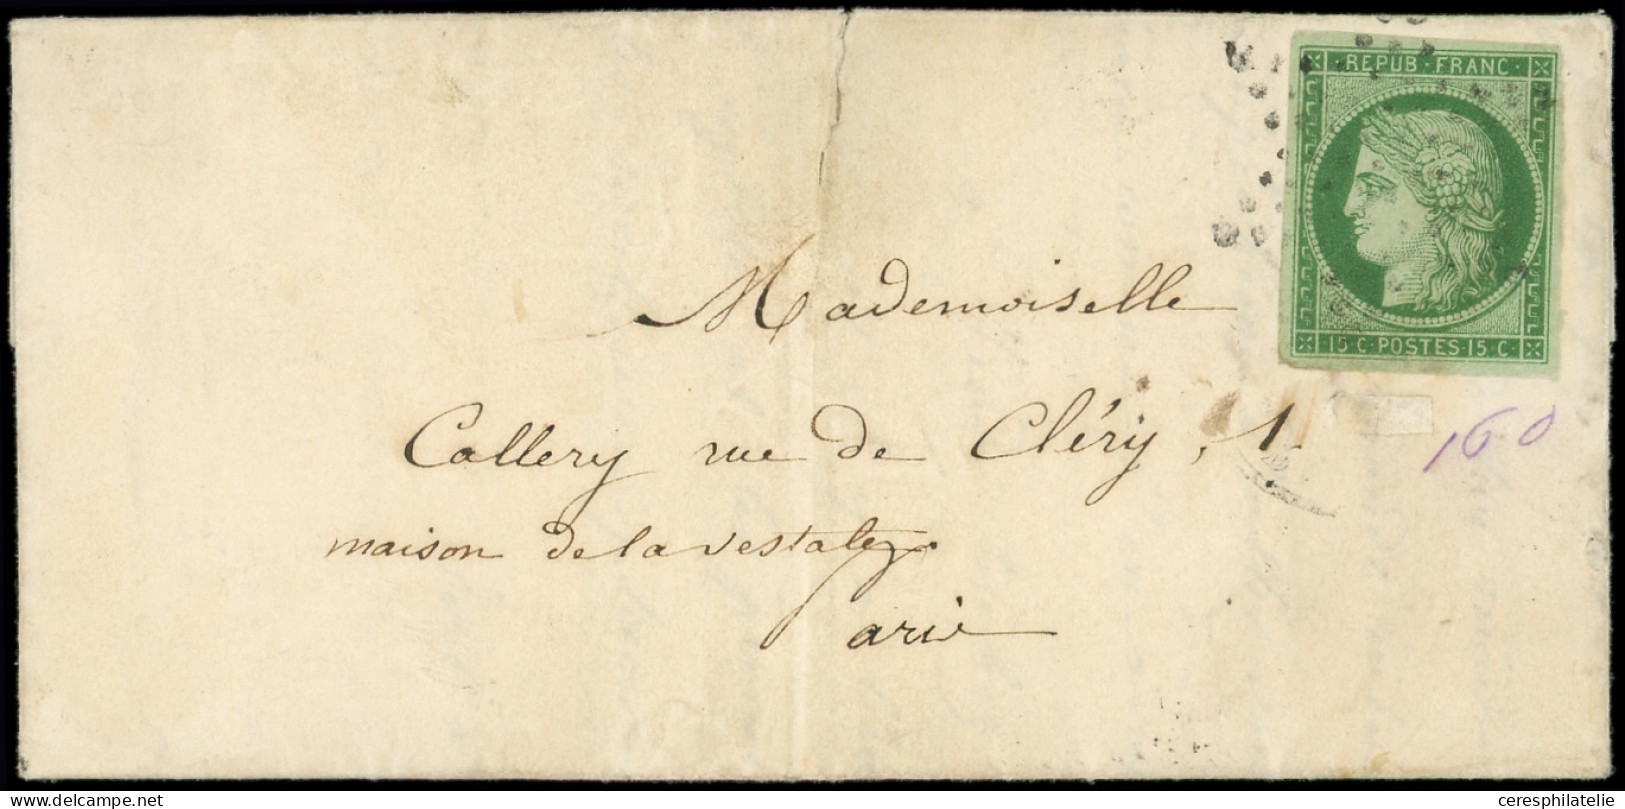 REPUB · FRANC ·
15 C · POSTES · 15 C
Mademoiselle
Callery rue de Cléry, 1.
160
maison de la vestale
Paris
delcampe.net
ceresphilatelie